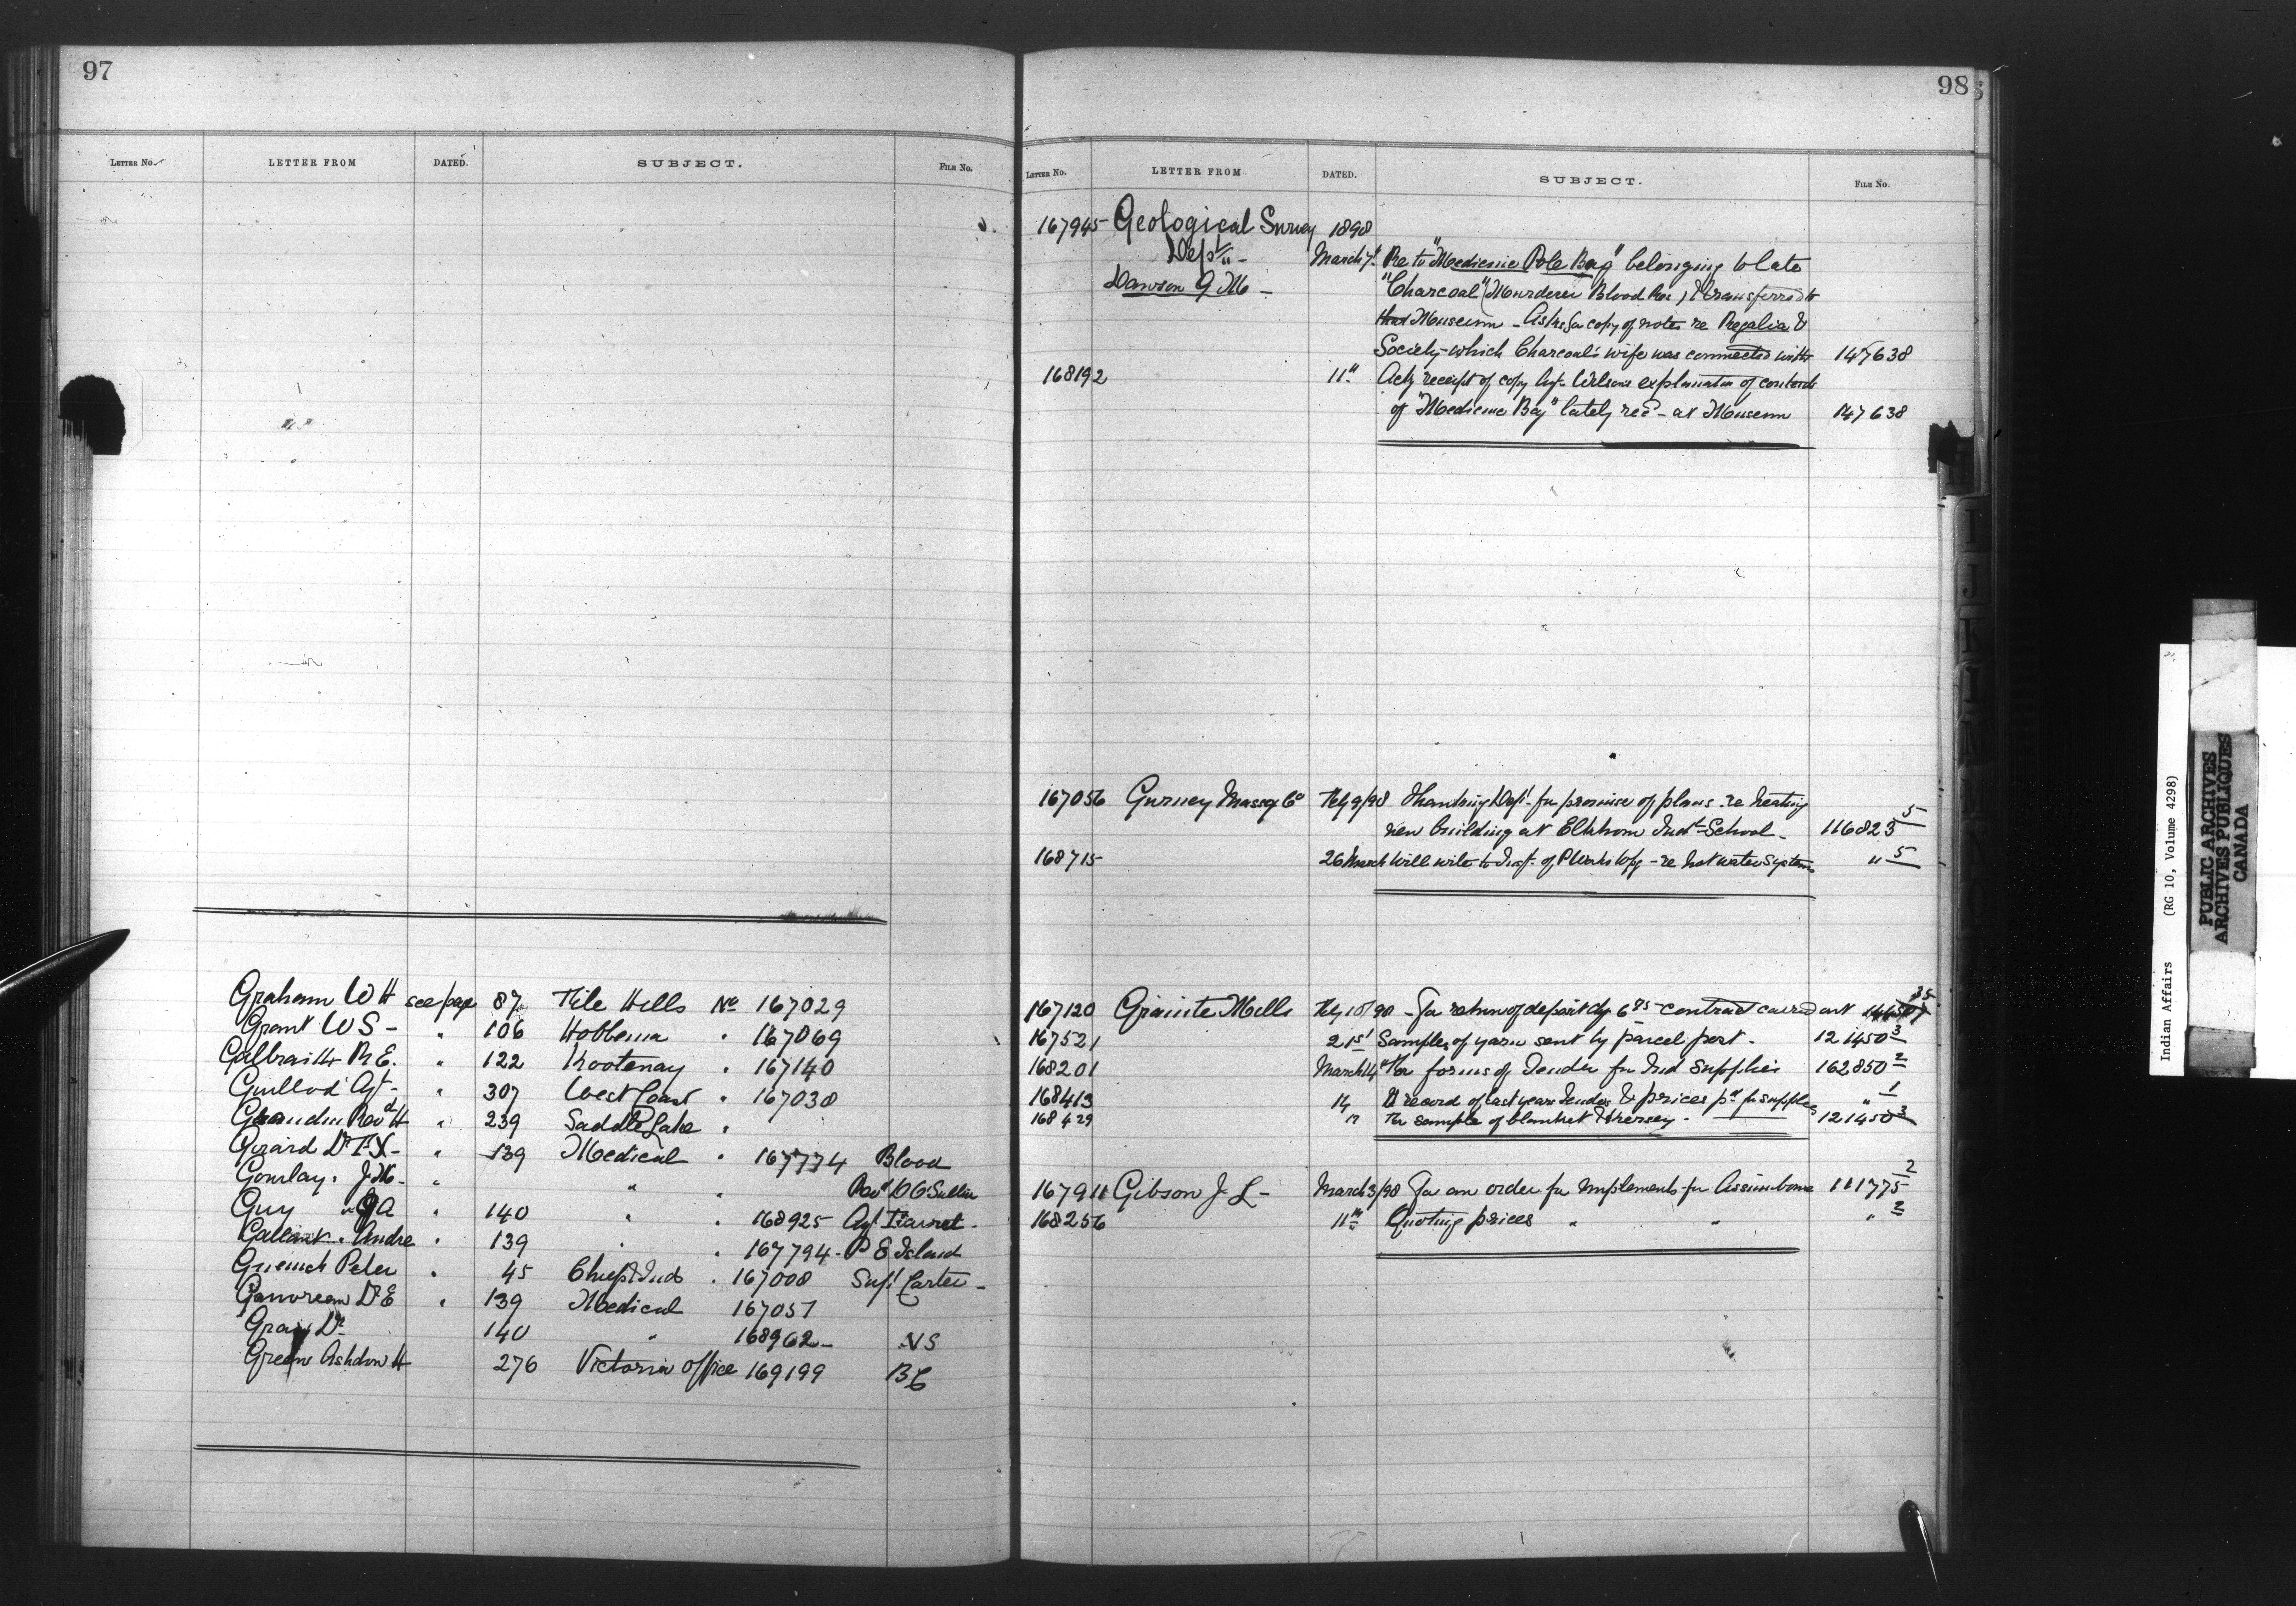 97
LETTER No. LETTER FROM DATED. SUBJECT. FILE No.
Graham W H see page 87 File Hills No 167029
Grant W S - " 106 Hobbema " 167069
Galbraith R E. " 122 Kootenay " 167140
Guillod Agt - " 307 West Coast " 167030
Grandin Revd H " 239 Saddle Lake "
Girard Dr F X - " 139 Medical " 167774 Blood
Gourlay. J M - " " "
Guy " G A " 140 " " 168925 Agt
Gallant . Andre " 139 " " 167794 - P E Island
Peter " 45 " 167008 Supt Carter -
Dr E " 139 Medical 167057
Gray Dr 140 " 168962 - N S
Green Ashdown H 276 Victoria office 169199 B C
98
LETTER No. LETTER FROM DATED. SUBJECT. FILE No.
167945 - Geological Survey 1898
Dept " - March 7" Re to "Medicine Pole Bag" belonging to late
Dawson G M - "Charcoal" (Murderer Blood Res) & transferred to
that Museum - Asks for copy of notes re Regalia &
Society - which Charcoal's wife was connected with 147638
168192 11" Ackg receipt of copy Agt Wilson's explanation of contents
of "Medicine Bag" lately recd - at Museum 147638
167056 Gurney Massey Co Feb 9/98 Thanking Dept. for promise of plans - re heating
new building at Elkhorn Indl School - 116823 5
168715 - 26 March Will write to of - re hot water system " 5
167120 Granite Mills Feb 10/98 - For return of deposit contract carried out
167521 21st Samples of yarn sent by parcel post - 121450 3
168201 March 14" For forms of Tender for Ind Supplies 162850 2
168413 record of last years tender & prices pd for supplies " 1
168429 For sample of blanket & kersey - 121450 3
167911 Gibson J L - March 3/98 For an order for implements for Assiniboine 111775 2
168256 11th Quoting prices " " " 2
Indian Affairs (RG 10, Volume 4298)
PUBLIC ARCHIVES
ARCHIVES PUBLIQUES
CANADA